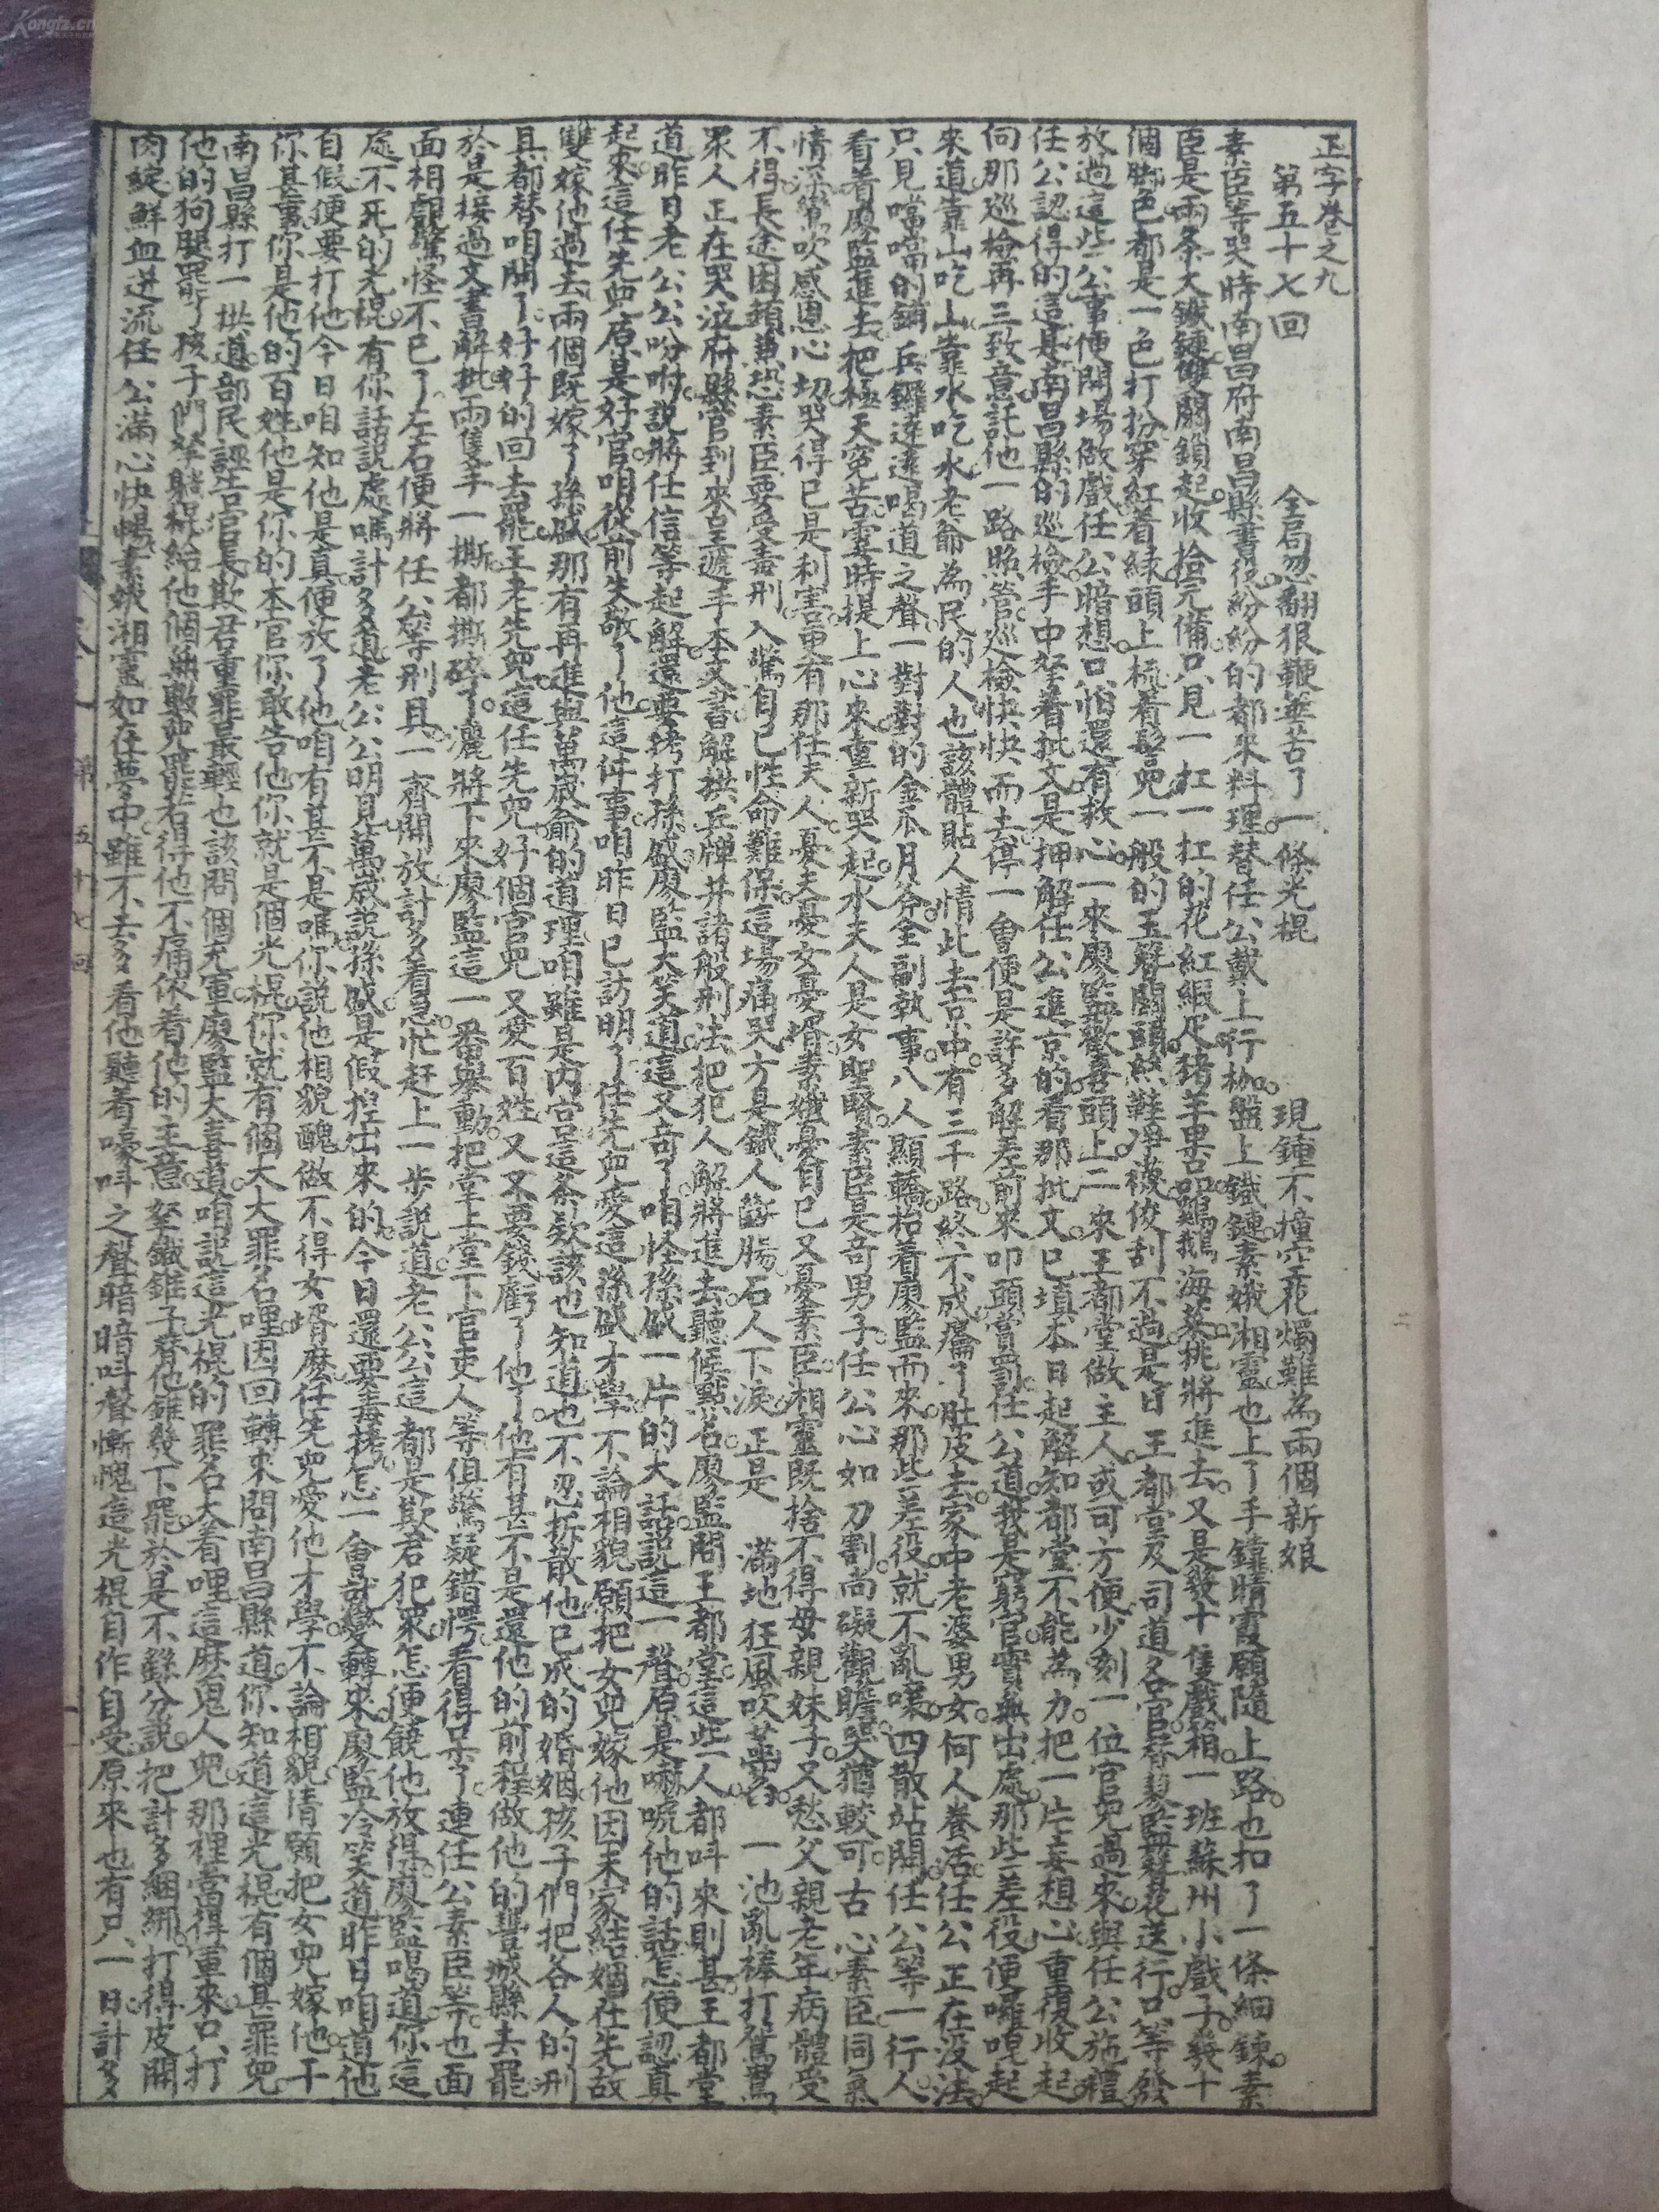 正字卷之九
第五十七回 全局忽翻狠鞭箠苦了一條光棍 現鐘不撞空花燭難為兩個新娘
素臣等哭時南昌府南昌縣書役紛紛的都來料理替任公戴上行枷盤上鐵鏈素娥湘靈也上了手鐘晴霞願隨上路也扣了一條細鍊素
臣是兩条大鐵鍊雙關鎖起收拾完備只見一扛一扛的花紅緞疋豬羊果品鷄鵝海菜挑將進去又是幾十隻戲箱一班蘇州小戲子幾十
個脚色都是一色打扮穿紅着緑頭上梳着髻兜一般的玉簪關頭絲鞋淨襪俊刮不過是日王都堂及司道各官替廖監簪花送行只等發
放過這些公事便開場做戲任公暗想只怕還有救心一來廖監歡喜頭上二來王都堂做主人或可方便少刻一位官兒過來與任公施禮
任公認得的這是南昌縣的巡檢手中拏着批文是押解任公進京的看那批文已填本日起解知都堂不能為力把一片妄想心重復收起
向那巡檢再三致意託他一路照管巡檢怏怏而去停一會便是許多解差前來叩頭賞罰任公道我是窮官實無出處那些差役便囉唣起
來道靠山吃山靠水吃水老爺為民的人也該體貼人情此去京中有三千路終不成癟了肚皮去家中老婆男女何人養活任公正在没法
只見噹噹的鎖兵鑼逹逺喝道之聲一對對的金瓜月斧全副執事八人顯轎抬着廖監而來那些差役就不亂嚷四散站開任公等一行人
看着廖監進去把極天寃苦霎時提上心來重新哭起水夫人是女聖賢素臣是奇男子任公心如刀割尚礙觀瞻哭猶較可古心素臣同氣
情深鸞吹感恩心切哭得已是利害更有那任夫人憂夫憂女憂壻素娥憂自已又憂素臣湘靈既捨不得母親妹子又愁父親老年病體受
不得長途困頓兼恐素臣要受毒刑入驚自已性命難保這場痛哭方是鐵人斷腸石人下淚正是 滿地狂風吹菡萏 一池亂棒打鴛鴦
衆人正在哭泣府縣官到來呈遞手本文書解批兵牌并諸般刑法把犯人解將進去聽候點名廖監問王都堂這些人都呌來則甚王都堂
道昨日老公公吩咐説將任信等起解還要拷打孫盛廖監大笑道這又奇了咱怪孫盛一片的大話説這一聲原是嚇唬他的話怎便認真
起來這任先兒原是好官咱從前失敬了他這件事咱昨日已訪明了任先兒愛這孫盛才學不論相貌願把女兒嫁他因未家結姻在先故
雙嫁他過去兩個既嫁了孫盛那有再進與萬歲爺的道理咱雖是内官這条欵該也知道也不忍拆散他已成的婚姻孩子們把各人的刑
具都替咱開了好好的回去罷王老先兒這任先兒好個官兒又愛百姓又又不要錢虧了他了他有甚不是還他的前程做他的豐城縣去罷
於是接過文書解批兩隻手一撕都撕碎了灑將下來廖監這一番舉動把堂上堂下官吏人等俱驚疑錯愕看得呆了連任公素臣等也面
面相覷驚怪不已了左右便將任公等刑具一齊開放計多看急忙赶上一步説道老公公這都是欺君犯衆怎便饒他放得廖監喝道你這
處不死的光棍有你話説處嗎計多道老公公明見萬歲説孫盛是假揑出來的今日還要毒拷怎一會就變轉來廖監冷笑道昨日咱道他
自假便要打他今日咱知他是真便放了他咱有甚不是嗎你説他相貌醜做不得女壻麽任先兒愛他才學不論相貌情願把女兒嫁他干
你甚事你是他的百姓他是你的本官你敢告他你就是個光棍你就有個大大罪名哩因回轉來問南昌縣道你知道這光棍有個甚罪兒
南昌縣打一拱道部民誣告官長欺君重罪最輕也該問個充軍廖監大喜道咱説這光棍的罪名大着哩這麻鬼人兒那裡當得軍來只打
他的狗腿罷了孩子們拏躺棍給他個無數兒罷若得他不痛依着他的主意拏鐵錐子替他錐幾下罷於是不繇分説把計多綑綁打得皮開
肉綻鮮血迸流任公滿心快暢素娥湘靈如在夢中雖不去多看他聽着嚎呌之聲暗暗呌聲慚愧這光棍自作自受原來也有只一日計多